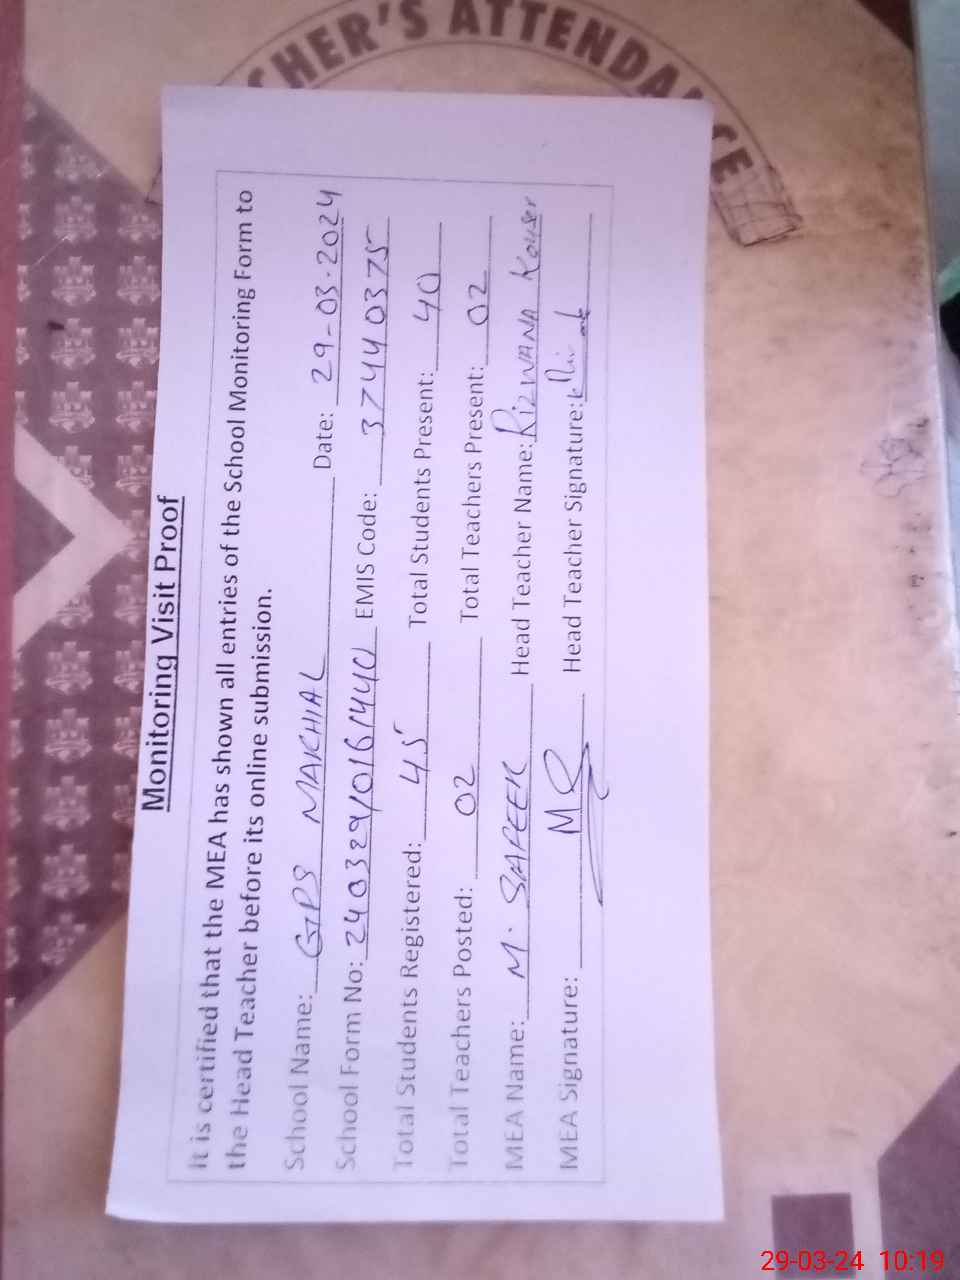 CHER'S ATTENDANCE
Monitoring Visit Proof
It is certified that the MEA has shown all entries of the School Monitoring Form to
the Head Teacher before its online submission.
School Name: GPS MAKHIAL Date: 29-03-2024
School Form No: EMIS Code: 37440375
Total Students Registered: 45 Total Students Present: 40
Total Teachers Posted: 02 Total Teachers Present: 02
MEA Name: M. SAFEER Head Teacher Name: RIZWANA Kouser
MEA Signature: Head Teacher Signature:
29-03-24 10:19